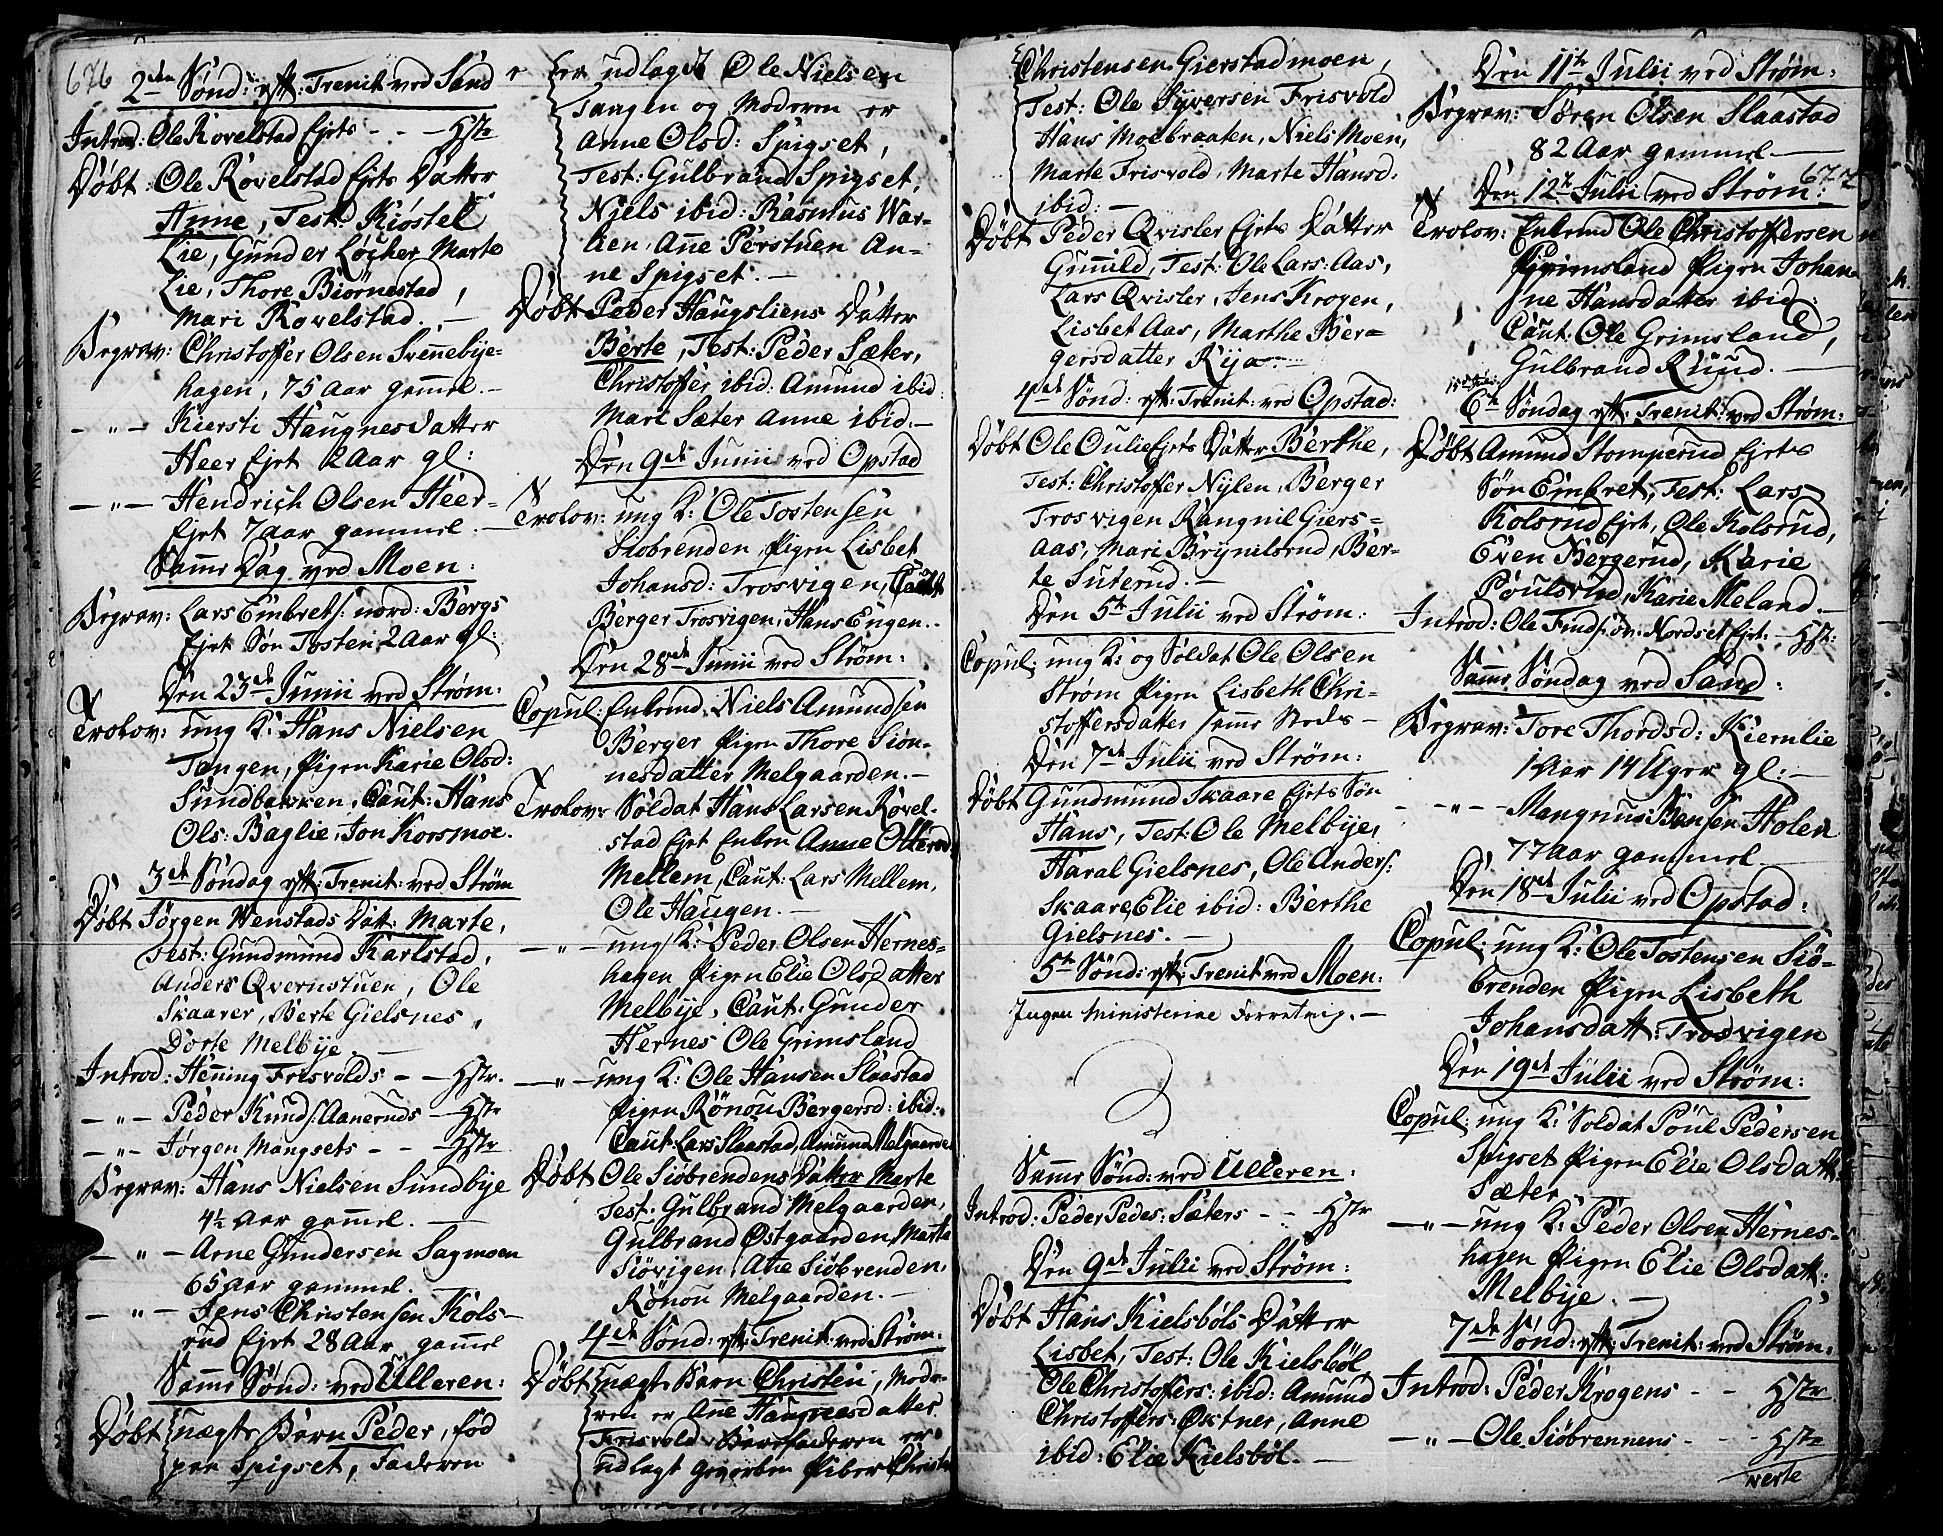 676
2den Sønd: eft: Trenit: ved Sand
Introd: Ole Rovelstad Ejets - - - Hstr
Døbt: Ole Rovelstad Ejets Datter
Anne, Test: Kiøstel
Lie, Gunder Løcker Marte
Lie, Thore Biørnestad,
Mari Rovelstad. —
Begrav: Christoffer Olsen Svennebye-
hagen, 75 Aar gammel. —
— " — Kiersti Haugnesdatter
Heer Ejet 2 Aar gl:
— " — Hendrich Olsen Heer-
Ejet 7 Aar gammel. —
Samme Dag ved Moen:
Begrav: Lars Embrets: nord: Bergs
Ejet Søn Tosten 2 Aar gl:
Den 23de Junii ved Strøm:
Trolov: ung K: Hans Nielsen
Tangen, Pigen Karie Olsd:
Sundbakken, Caut: Hans
Ols: Baglie, Jon Korsmoe.
3de Søndag eft: Trenit: ved Strøm
Døbt Jørgen Wenstads Datt: Marte,
Test: Gundmund Karlstad,
Anders Qvernstuen, Ole
Skaarer, Berte Gielsnes,
Dorte Melbye. —
Introd: Henning Frisvolds — — Hstr.
— " — Peder Knuds: Aaneruds — Hstr
— " — Jørgen Mangsets - - Hstr
Begrav: Hans Nielsen Sundbye
4½ Aar gammel. —
— " — Arne Gundersen Sagmoen
65 Aar gammel.
— " — Jens Christensen Kols-
rud Ejet 28 Aar gammel
Samme Sønd: ved Ulleren:
Døbt uægte Barn Peder, fød
paa Spigset, Faderen
er udlagdt Ole Nielsen
Tangen og Moderen er
Anne Olsd: Spigset,
Test: Gulbrand Spigset,
Niels ibid: Rasmus War-
lien, Anne Perstuen An-
ne Spigset. —
Døbt Peder Haugsliens Datter
Berte, Test: Peder Sæter,
Christoffer ibid: Amund ibid:
Mari Sæter Anne ibid: —
Den 9de Junii ved Opstad
Trolov: ung K: Ole Tostensen
Siøbrenden, Pigen Lisbet
Johansd: Trosvigen, Caut:
Berger Trosvigen, Hans Engen. -
Den 28de Junii ved Strøm:
Copul: Enkemd. Niels Amundsen
Berger Pigen Thore Sion-
nesdatter Melgaarden. —
Trolov: Soldat Hans Larsen Røvel-
stad Ejet Enken Anne Ollersd:
Mellem, Caut: Lars Mellem,
Ole Haugen. —
— " — ung K: Peder Olsen Hernes-
hagen Pigen Elie Olsdatter
Melbye, Caut: Gunder
Hernes Ole Grimsland
— " — ung K: Ole Hansen Slaastad
Pigen Rønou Bergersd: ibid:
Caut: Lars Slaastad, Amund Melgaarden
Døbt Ole Siøbrendens Datter Marte
Test: Gulbrand Melgaarden,
Gulbrand Ostgaarden, Marte
Siøvigen, Ane Siøbrenden,
Rønou Melgaarden. —
4de Sønd: eft: Trenit: ved Strøm:
Døbt uægte Barn Christen, Mode-
ren er Anne Haugnesdatter
Frisvold Barnfaderen er
udlagt Christen
Christensen Gierstadmoen,
Test: Ole Syversen Frisvold
Hans Moebraaten, Niels Moen,
Marte Frisvold, Marte Hansd:
ibid: —
Døbt Peder Qvisler Ejets Datter
Gunild, Test: Ole Lars: Aas,
Lars Qvisler, Jens Krogen,
Lisbet Aas, Marthe Ber-
gersdatter Rya. —
4de Sønd: eft: Trenit: ved Opstad:
Døbt Ole Oulie Ejets Datter Berthe,
Test: Christoffer Nylen, Berger
Trosvigen Rangnil Giers-
aas, Mari Brynilsrud, Ber-
te Suterud. —
Den 5te Julii ved Strøm:
Copul: ung K: og Soldat Ole Olsen
Strøm Pigen Lisbeth Chri-
stoffersdatter samme Steds —
Den 7de Julii ved Strøm:
Døbt Gundmund Skaare Ejets Søn
Hans, Test: Ole Melbye,
Haral Gielsnes, Ole Anders:
Skaare, Elie ibid: Berthe
Gielsnes. —
5te Sønd: eft: Trenit ved Moen:
Ingen Ministerine Forretnig. —
Samme Sønd: ved Ulleren:
Introd: Peder Peders: Sæters - - Hstr
Den 9de Julii ved Strøm:
Døbt Hans Kielsbøls Datter
Lisbet, Test: Ole Kielsbøl,
Ole Christoffers: ibid: Amund
Christoffers: Øktner, Anne
ibid: Elie Kielsbøl. —
Den 11te Julii ved Strøm:
Begrav: Søren Olsen Slaastad
82 Aar gammel —
677
Den 12te Julii ved Strøm:
Trolov: Enkemd Ole Christoffersen
Grimsland Pigen Johan-
ne Hansdatter ibid:
Caut: Ole Grimsland,
Gulbrand Ruud. —
6te Søndag eft: Trenit: ved Strøm:
Døbt Amund Stomperud Ejets
Søn Embret, Test: Lars
Kolsrud Ejet, Ole Kolsrud,
Even Bergerud, Karie
Poulsrud, Karie Meland. —
Introd: Ole Finds: øv: Nordset Ejet: — Hstr:
Samme Søndag ved Sand:
Begrav: Tore Thordsd: Kiernlie
1 Aar 14 Uger gl: —
- " - Mangnus Hansen Holen
77 Aar gammel. —
Den 18de Julii ved Opstad:
Copul: ung K: Ole Tostensen Siø-
brenden Pigen Lisbeth
Johansdatt: Trosvigen
Den 19de Julii ved Strøm:
Copul: ung K: Soldat Poul Pedersen
Spigset Pigen Elie Olsdatt:
Sæter. —
— " — ung K: Peder Olsen Hernes-
hagen Pigen Elie Olsdatt:
Melbye. —
7de Sønd: eft: Trenit: ved Strøm:
Introd: Peder Krogens - - Hstr
— " — Ole Siøbrennens - - - Hstr
Verte